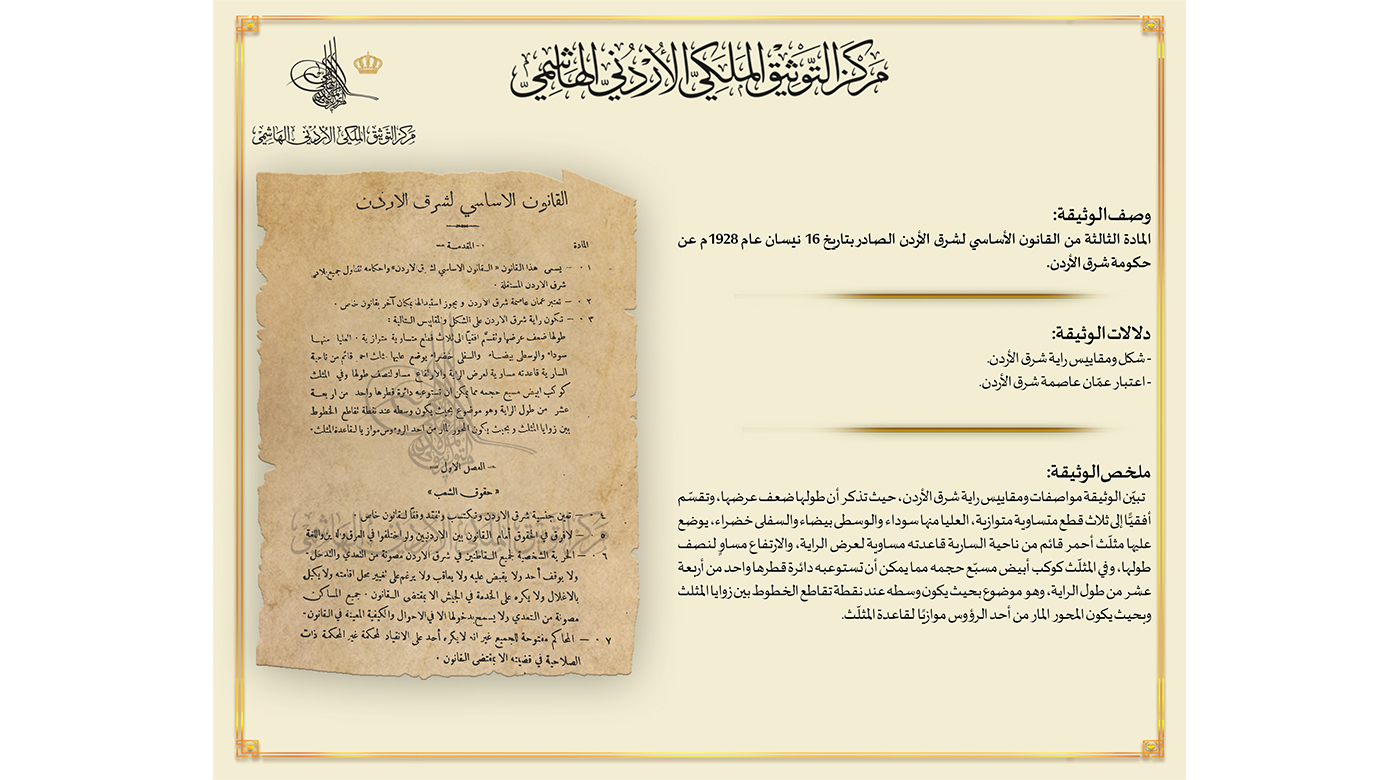 مركز التوثيق الملكي الأردني الهاشمي
مركز التوثيق الملكي الأردني الهاشمي
وصف الوثيقة:
المادة الثالثة من القانون الأساسي لشرق الأردن الصادر بتاريخ 16 نيسان عام 1928م عن
حكومة شرق الأردن.
دلالات الوثيقة:
- شكل ومقاييس راية شرق الأردن.
- اعتبار عمّان عاصمة شرق الأردن.
ملخص الوثيقة:
تبيّن الوثيقة مواصفات ومقاييس راية شرق الأردن، حيث تذكر أن طولها ضعف عرضها، وتقسّم
أفقيًّا إلى ثلاث قطع متساوية متوازية، العليا منها سوداء والوسطى بيضاء والسفلى خضراء، يوضع
عليها مثلّث أحمر قائم من ناحية السارية قاعدته مساوية لعرض الراية، والارتفاع مساوٍ لنصف
طولها، وفي المثلّث كوكب أبيض مسبّع حجمه مما يمكن أن تستوعبه دائرة قطرها واحد من أربعة
عشر من طول الراية، وهو موضوع بحيث يكون وسطه عند نقطة تقاطع الخطوط بين زوايا المثلث
وبحيث يكون المحور المار من أحد الرؤوس موازيًا لقاعدة المثلّث.
القانون الاساسي لشرق الاردن
المادة -٠ المقدمة -
٠١ - يسمى هذا القانون « القانون الاساسي لشرق الاردن» واحكامه تتناول جميع
شرق الاردن المستقلة ٠
٠٢ - تعتبر عمان عاصمة شرق الاردن و يجوز استبدالها بمكان آخر بقانون خاص ٠
٠٣ - تكون راية شرق الاردن على الشكل والمقاييس التالية :
طولها ضعف عرضها وتقسّم افقيًا الى ثلاث قطع متساوية متوازية ٠ العليا منها
سوداء والوسطى بيضاء والسفلى خضراء يوضع عليها مثلث احمر قائم من ناحية
السارية قاعدته مساوية لعرض الراية والارتفاع مساو لنصف طولها وفي المثلث
كوكب ابيض مسبع حجمه مما يمكن ان تستوعبه دائرة قطرها واحد من اربعة
عشر من طول الراية وهو موضوع بحيث يكون وسطه عند نقطة تقاطع الخطوط
بين زوايا المثلث و بحيث يكون المحور المار من احد الرؤوس موازيا لقاعدة المثلث٠
- الفصل الاول -
« حقوق الشعب »
٠٤ - تعين جنسية شرق الاردن وتكتسب وتفقد وفقًا لقانون خاص
٠٥ - لافرق في الحقوق أمام القانون بين الاردنيين ولو اختلفوا في العرق والدين واللغة
٠٦ - الحرية الشخصية لجميع القاطنين في شرق الاردن مصونة من التعدي والتدخل ٠
ولا يوقف أحد ولا يقبض عليه ولا يعاقب ولا يرغم على تغيير محل اقامته ولا يكبل
بالاغلال ولا يكره على الخدمة في الجيش الا بمقتضى القانون ٠ جميع المساكن
مصونة من التعدي ولا يسمح بدخولها الا في الاحوال والكيفية المعينة في القانون٠
٠٧ - المحاكم مفتوحة للجميع غير انه لا يكره أحد على الانقياد لمحكمة غير المحكمة ذات
الصلاحية في قضيته الا بمقتضى القانون ٠